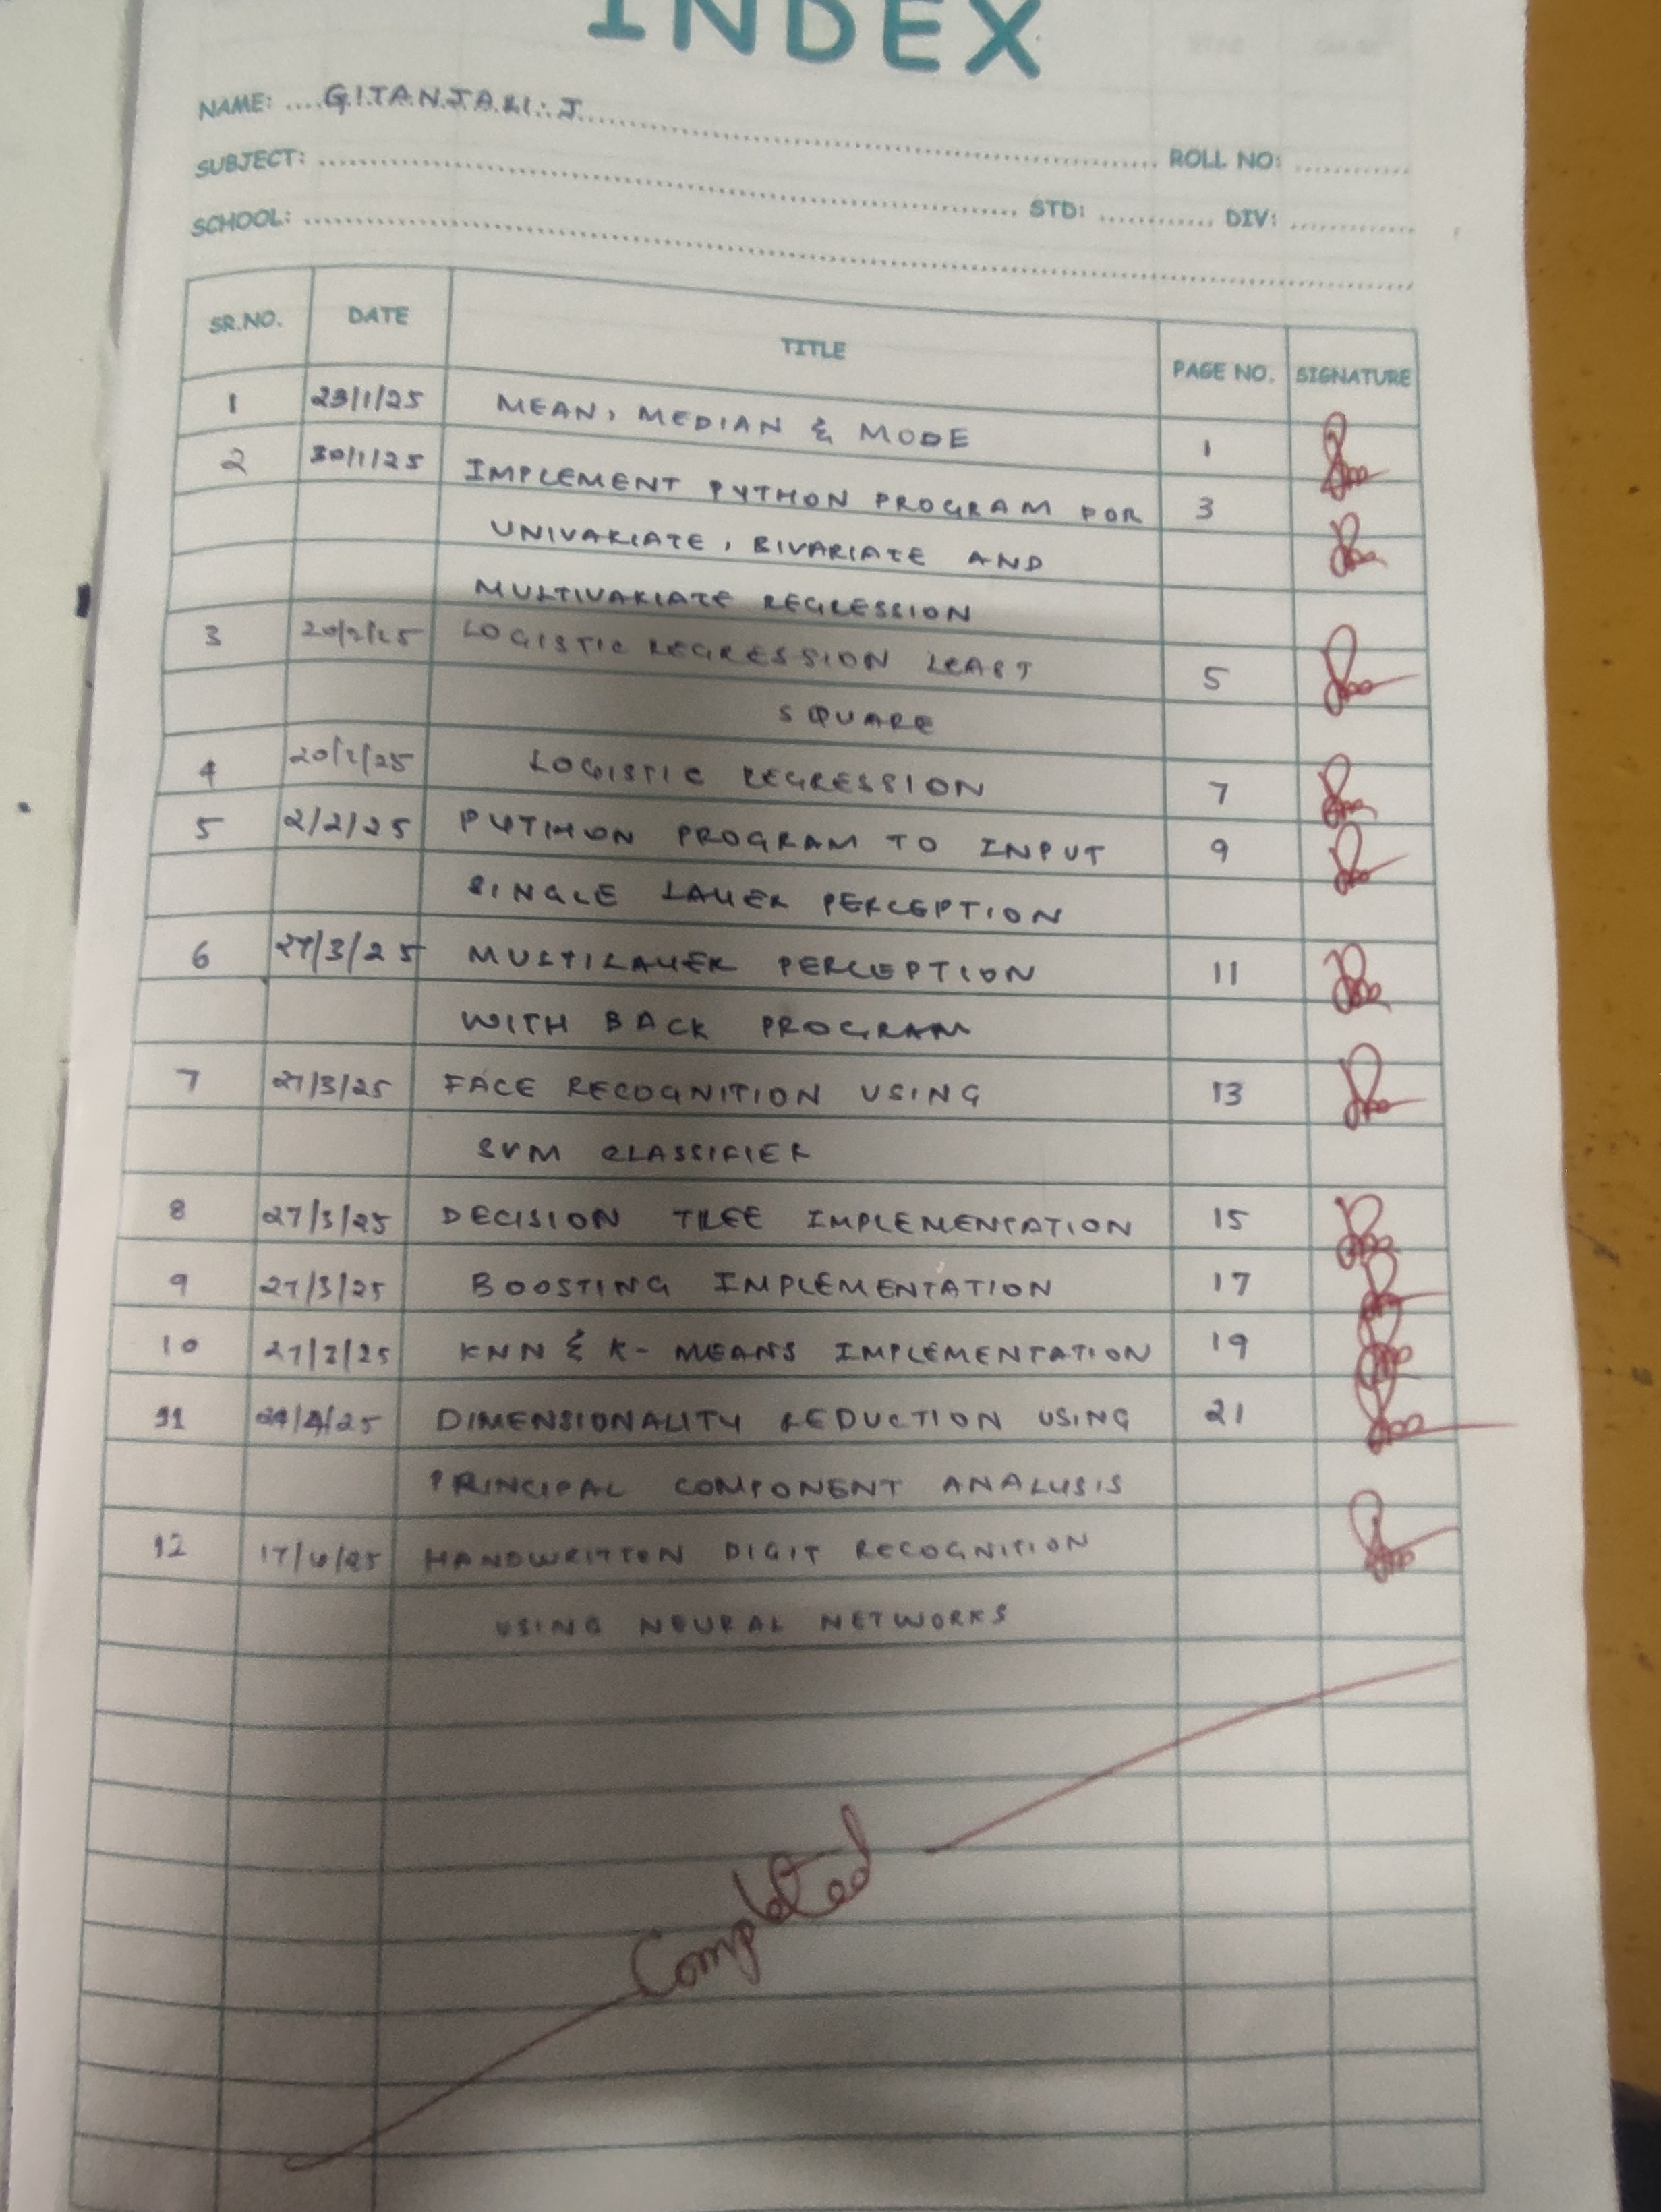 INDEX
NAME: GITANJALI. J ROLL NO:
SUBJECT: STD: DIV:
SCHOOL:
SR.NO. DATE TITLE PAGE NO. SIGNATURE
1 23/1/25 MEAN, MEDIAN & MODE 1
2 30/1/25 IMPLEMENT PYTHON PROGRAM FOR 3
UNIVARIATE, BIVARIATE AND
MULTIVARIATE REGRESSION
3 20/2/25 LOGISTIC REGRESSION LEAST 5
SQUARE
4 20/2/25 LOGISTIC REGRESSION 7
5 2/2/25 PYTHON PROGRAM TO INPUT 9
SINGLE LAYER PERCEPTION
6 27/3/25 MULTILAYER PERCEPTION 11
WITH BACK PROGRAM
7 27/3/25 FACE RECOGNITION USING 13
SVM CLASSIFIER
8 27/3/25 DECISION TREE IMPLEMENTATION 15
9 27/3/25 BOOSTING IMPLEMENTATION 17
10 27/3/25 KNN & K-MEANS IMPLEMENTATION 19
11 DIMENSIONALITY REDUCTION USING 21
PRINCIPAL COMPONENT ANALYSIS
12 HANDWRITTEN DIGIT RECOGNITION
USING NEURAL NETWORKS
Completed